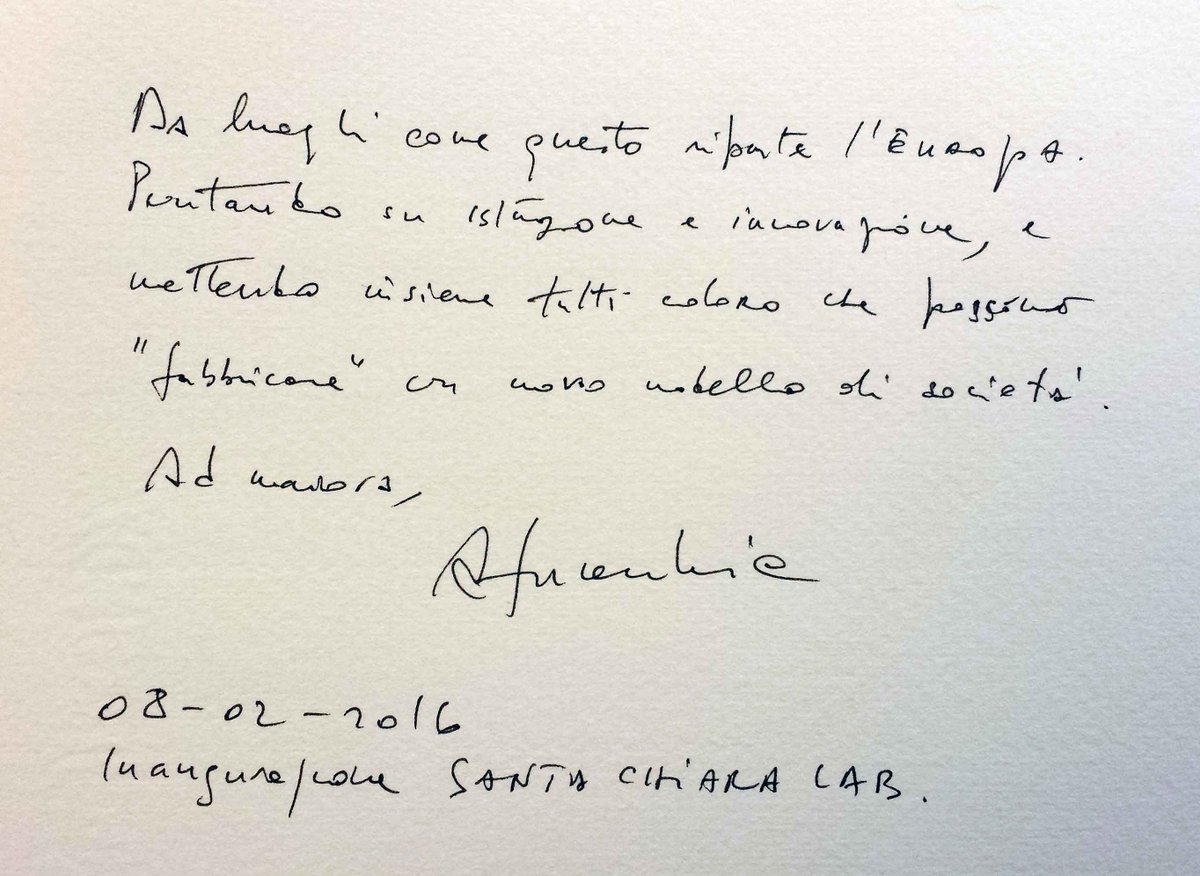 Da luoghi come questo riparte l'Europa.
Puntando su istruzione e innovazione, e
mettendo insieme tutti coloro che possono
"fabbricare" un nuovo modello di società.
Ad maiora,
08-02-2016
Inaugurazione SANTA CHIARA LAB.